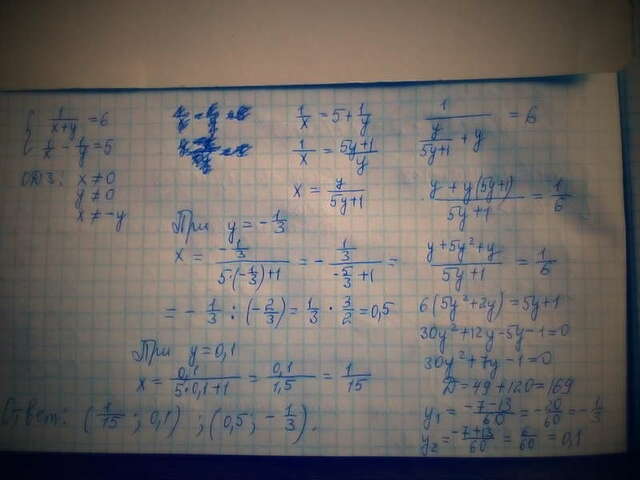 { 1/(x+y) = 6
{ 1/x - 1/y = 5
ОДЗ: x ≠ 0
y ≠ 0
x ≠ -y
1/x = 5 + 1/y
1/x = (5y+1)/y
x = y/(5y+1)
1/(y/(5y+1) + y) = 6
(y + y(5y+1))/(5y+1) = 1/6
(y+5y²+y)/(5y+1) = 1/6
6(5y²+2y) = 5y+1
30y²+12y-5y-1=0
30y²+7y-1=0
D=49+120=169
y₁ = (-7-13)/60 = -20/60 = -1/3
y₂ = (-7+13)/60 = 6/60 = 0,1
При y = -1/3
x = (-1/3)/(5·(-1/3)+1) = - (1/3)/(-5/3+1) =
= - 1/3 : (-2/3) = 1/3 · 3/2 = 0,5
При y=0,1
x = 0,1/(5·0,1+1) = 0,1/1,5 = 1/15
Ответ: (1/15; 0,1); (0,5; -1/3).